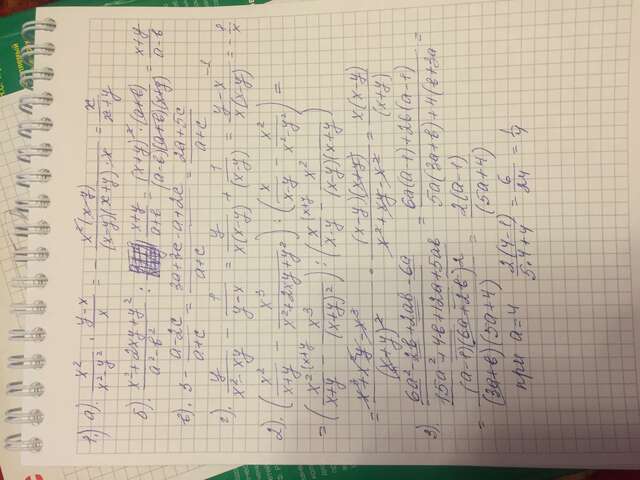 1.) а). x²/(x²-y²) · (y-x)/x = - x²(x-y)/((x-y)(x+y)·x) = x/(x+y)
б). (x²+2xy+y²)/(a²-b²) : (x+y)/(a+b) = (x+y)²·(a+b)/((a-b)(a+b)(x+y)) = (x+y)/(a-b)
в). 3 - (a-2c)/(a+c) = (3a+3c-a+2c)/(a+c) = (2a+5c)/(a+c)
г). y/(x²-xy) - 1/(y-x) = y/(x(x-y)) + 1/(x-y) = (y-x)/(x(x-y)) = - 1/x
2). (x²/(x+y) - x³/(x²+2xy+y²)) : (x/(x-y) - x²/(x²-y²)) =
= (x²(x+y)/(x+y) - x³/(x+y)²) : (x(x+y)/(x-y) - x²/((x-y)(x+y)))
= (x³+x²y-x³)/(x+y)² · (x-y)(x+y)/(x²+xy-x²) = x(x-y)/(x+y)
3) (6a²-2b+2ab-6a)/(15a²+4b+12a+5ab) = (6a(a-1)+2b(a-1))/(5a(3a+b)+4(b+3a)) =
= (a-1)(6a+2b)/((3a+b)(5a+4)) = 2(a-1)/(5a+4)
при a=4 2(4-1)/(5·4+4) = 6/24 = 1/4